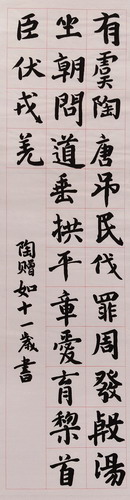 有虞陶唐吊民伐罪周發殷湯
坐朝問道垂拱平章愛育黎首
臣伏戎羌
陶赠如十一歲書